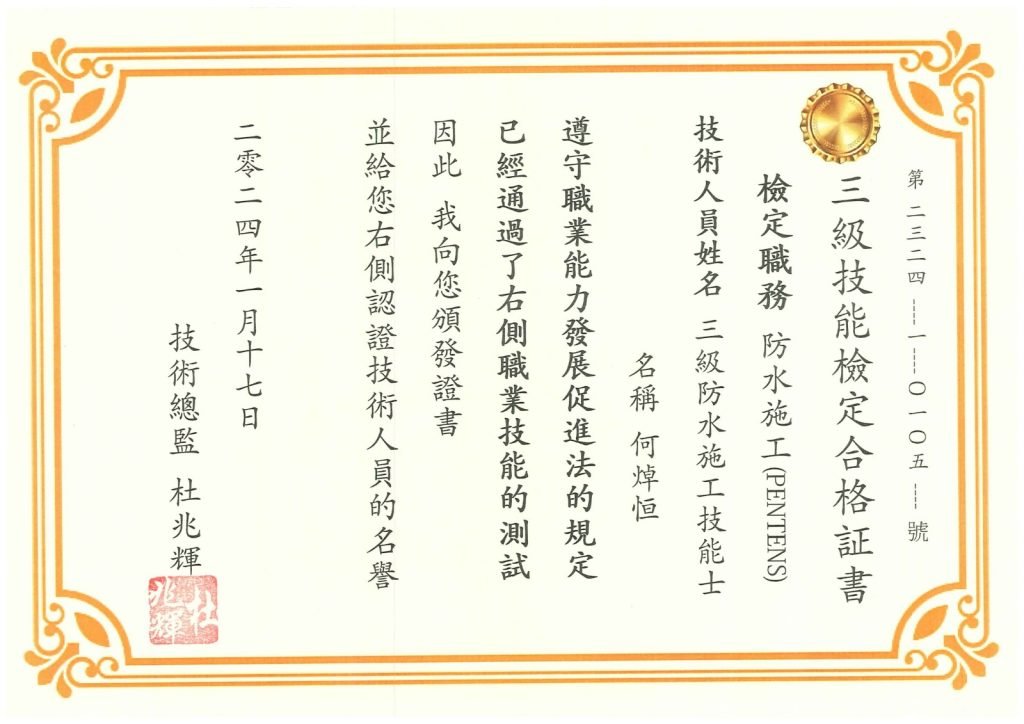 第 二三二四 ---- 一 ---- 〇一〇五 ---- 號
三級技能檢定合格証書
檢定職務 防水施工(PENTENS)
技術人員姓名 三級防水施工技能士
名稱 何焯恒
遵守職業能力發展促進法的規定
已經通過了右側職業技能的測試
因此 我向您頒發證書
並給您右側認證技術人員的名譽
二零二四年一月十七日
技術總監 杜兆輝
杜兆輝